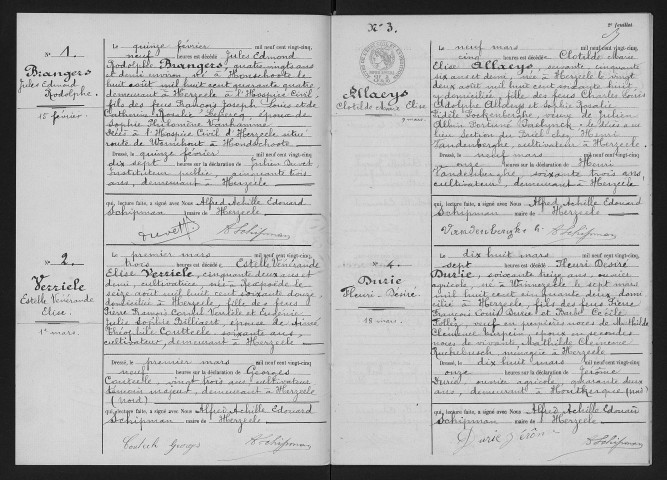 N° 1.
Brangers
Jules Edmond
Rodolphe.
15 février.
Le quinze février mil neuf cent vingt-cinq,
neuf heures est décédé Jules Edmond
Rodolphe Brangers, quatre vingts ans
et demi environ né à Hondschoote le
huit août mil huit cent quarante quatre
demeurant à Herzeele à l'Hospice Civil,
fils des feus François Joseph Louis et de
Catherine Rosalie époux de
Sophie Philomène
Décédé à l'Hospice Civil d'Herzeele situé
route de Wormhout à Hondschoote.
Dressé, le quinze février mil neuf cent vingt-cinq
dix sept heures sur la déclaration de Julien Duvet
Instituteur public, cinquante trois
ans, demeurant à Herzeele
qui, lecture faite, a signé avec Nous Alfred Achille Edouard
Schipman maire de Herzeele.
Duvet
A. Schipman
N° 2
Verriele
Estelle Vénérande
Elise.
1er mars.
Le premier mars mil neuf cent vingt-cinq,
trois heures est décédée Estelle Vénérande
Elise Verriele, cinquante deux ans et
demi, cultivatrice, née à Rexpoëde le
seize août mil huit cent soixante douze
domiciliée à Herzeele, fille des feus
Pierre Francois Cornil Verriele et Eugénie
Julie Sophie épouse de
Théophile Coutteele soixante ans,
cultivateur, demeurant à Herzeele.
Dressé, le premier mars mil neuf cent vingt-cinq
neuf heures sur la déclaration de Georges
Coutteele, vingt trois ans, cultivateur
témoin majeur, demeurant à Herzeele
(nord)
qui, lecture faite, a signé avec Nous Alfred Achille Edouard
Schipman maire de Herzeele.
Georges
A. Schipman
2e feuillet
N° 3.
Allaeys
Clotilde Marie Elise.
9 mars.
Le neuf mars mil neuf cent vingt-cinq,
cinq heures est décédée Clotilde Marie
Elise Allaeys, soixante cinquante
six ans et demi, née à Herzeele le vingt
deux août mil huit cent soixante huit,
y domiciliée, fille des feus Charles Louis
Adolphe Allaeys et Sophie Rosalie
Fidèle veuve de Julien
Albin Fortuné Décédée au
lieu Section du chez Henri
Vandenberghe, cultivateur à Herzeele
Dressé, le neuf mars mil neuf cent vingt-cinq
onze heures sur la déclaration de Henri
Vandenberghe, soixante trois ans,
cultivateur, demeurant à Herzeele
qui, lecture faite, a signé avec Nous Alfred Achille Edouard
Schipman maire de Herzeele.
Vandenberghe h.
A. Schipman
N° 4
Durie
Fleuri Désiré.
18 mars.
Le dix huit mars mil neuf cent vingt-cinq,
sept heures est décédé Fleuri Désiré
Durie, soixante treize ans, ouvrier
agricole, né à Winnezeele le sept mars
mil huit cent cinquante deux domi
cilié à Herzeele, fils des feus Pierre
François Louis Durie et Barbe Cécile
Follet, veuf en premières noces de Mathilde
Clémence époux en secondes
noces de vivante Mathilde Clémence
ménagère à Herzeele
Dressé, le dix huit mars mil neuf cent vingt-cinq
onze heures sur la déclaration de Jérôme
Durie, ouvrier agricole, quarante deux
ans, demeurant à Houtkerque (nord)
qui, lecture faite, a signé avec Nous Alfred Achille Edouard
Schipman maire de Herzeele.
Durie Jérôme
A. Schipman